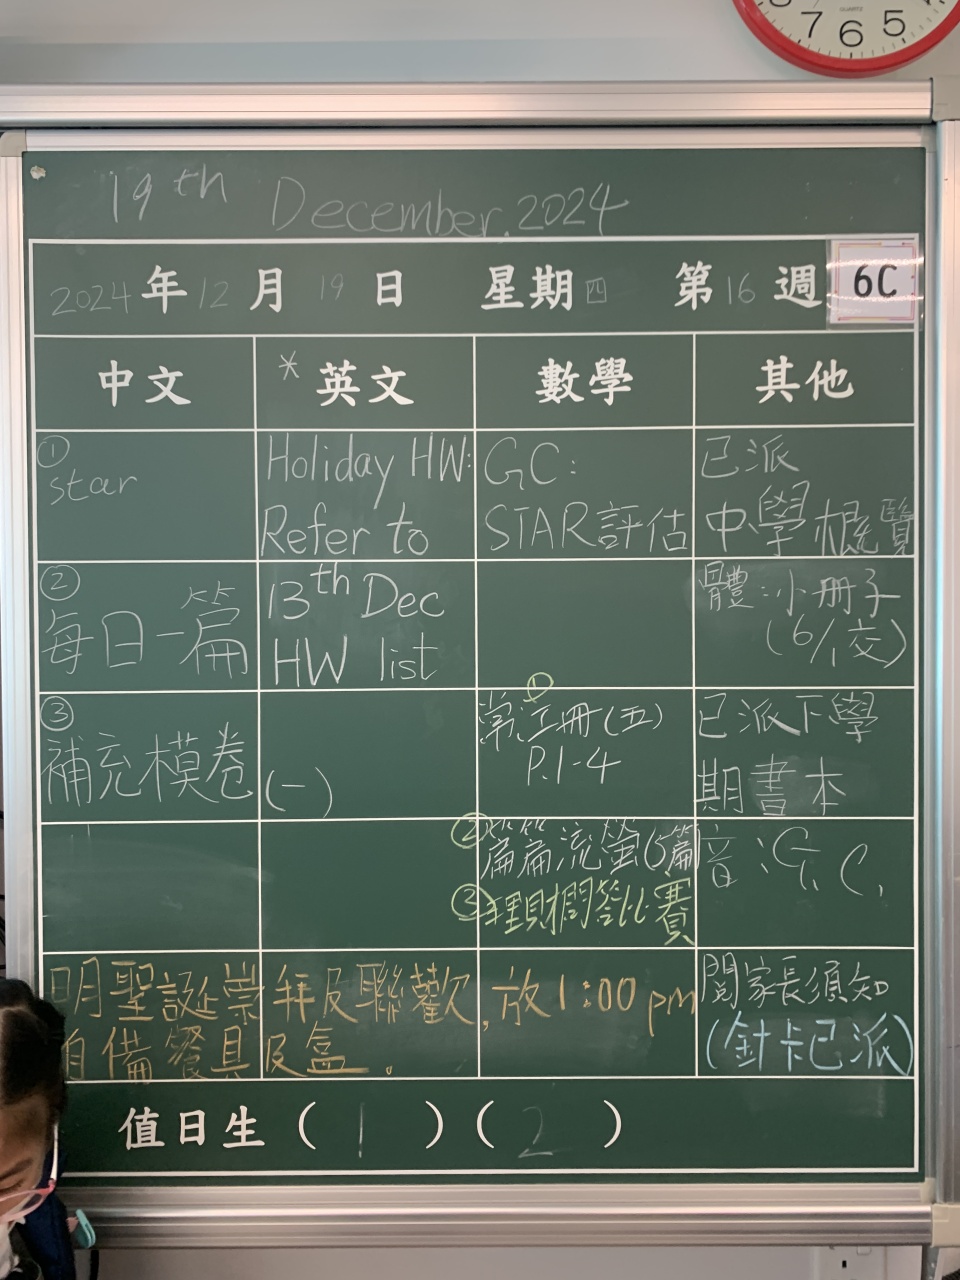 7 6 5
QUARTZ
19th December. 2024
2024年12月19日 星期四 第16週
6C
中文 *英文 數學 其他
①
star
Holiday HW:
Refer to
GC:
STAR評估
已派
中學概覽
②
每日一篇
13th Dec
HW list
體:小冊子
(6/1交)
③
補充模卷(一)
①
常:三冊(五)
P.1-4
已派下學
期書本
②篇篇流螢(5篇)
③理財問答比賽
音:G.C.
明聖誕崇拜及聯歡,放1:00pm
自備餐具及盒.
閱家長須知
(針卡已派)
值日生(1)(2)